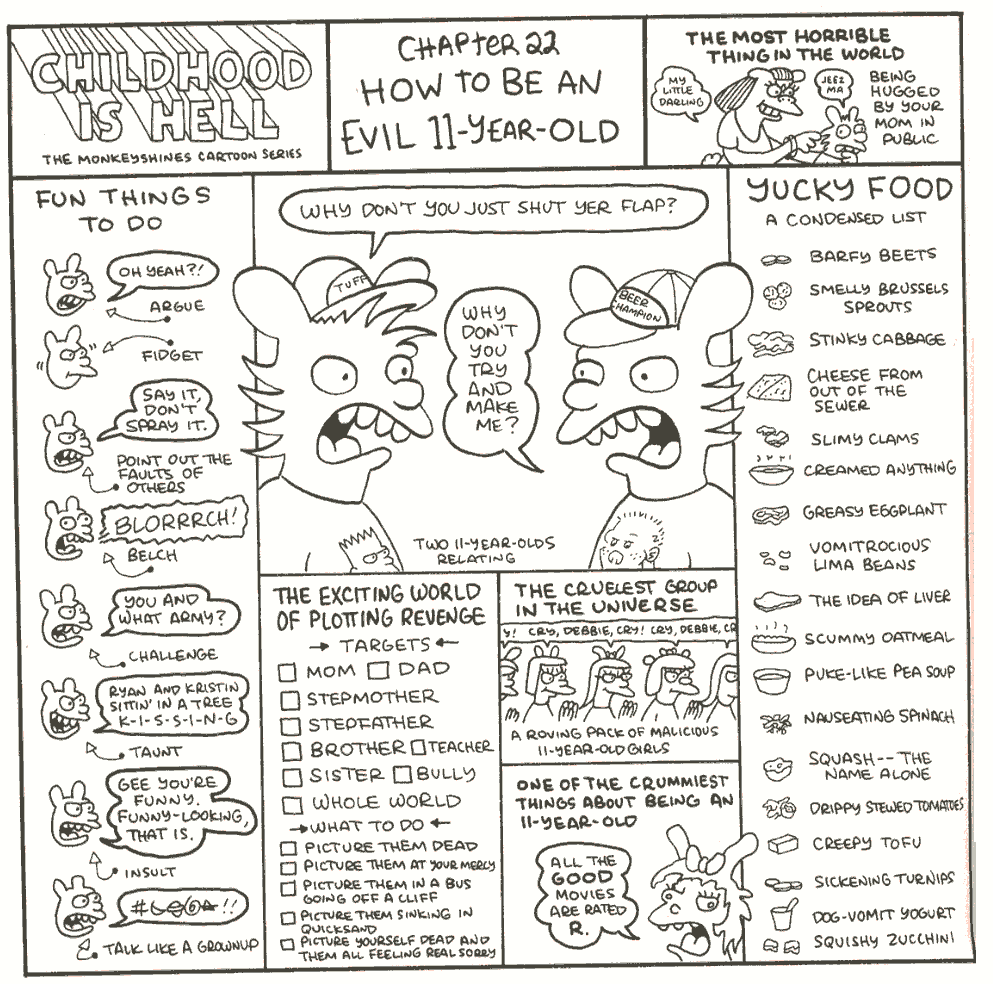 CHILDHOOD
IS HELL
THE MONKEYSHINES CARTOON SERIES
CHAPTER 22
HOW TO BE AN
EVIL 11-YEAR-OLD
THE MOST HORRIBLE
THING IN THE WORLD
MY
LITTLE
DARLING
JEEZ
MA
BEING
HUGGED
BY YOUR
MOM IN
PUBLIC
FUN THINGS
TO DO
OH YEAH?!
ARGUE
FIDGET
SAY IT,
DON'T
SPRAY IT.
POINT OUT THE
FAULTS OF
OTHERS
BLORRRCH!
BELCH
YOU AND
WHAT ARMY?
CHALLENGE
RYAN AND KRISTIN
SITTIN' IN A TREE
K-I-S-S-I-N-G
TAUNT
GEE YOU'RE
FUNNY.
FUNNY-LOOKING,
THAT IS.
INSULT
!!
TALK LIKE A GROWNUP
WHY DON'T YOU JUST SHUT YER FLAP?
TUFF
WHY
DON'T
YOU
TRY
AND
MAKE
ME?
BEER
CHAMPION
TWO 11-YEAR-OLDS
RELATING
THE EXCITING WORLD
OF PLOTTING REVENGE
→ TARGETS ←
☐ MOM ☐ DAD
☐ STEPMOTHER
☐ STEPFATHER
☐ BROTHER ☐ TEACHER
☐ SISTER ☐ BULLY
☐ WHOLE WORLD
→ WHAT TO DO ←
☐ PICTURE THEM DEAD
☐ PICTURE THEM AT YOUR MERCY
☐ PICTURE THEM IN A BUS
GOING OFF A CLIFF
☐ PICTURE THEM SINKING IN
QUICKSAND
☐ PICTURE YOURSELF DEAD AND
THEM ALL FEELING REAL SORRY
THE CRUELEST GROUP
IN THE UNIVERSE
Y! CRY, DEBBIE, CRY! CRY, DEBBIE, CR
A ROVING PACK OF MALICIOUS
11-YEAR-OLD GIRLS
ONE OF THE CRUMMIEST
THINGS ABOUT BEING AN
11-YEAR-OLD
ALL THE
GOOD
MOVIES
ARE RATED
R.
YUCKY FOOD
A CONDENSED LIST
BARFY BEETS
SMELLY BRUSSELS
SPROUTS
STINKY CABBAGE
CHEESE FROM
OUT OF THE
SEWER
SLIMY CLAMS
CREAMED ANYTHING
GREASY EGGPLANT
VOMITROCIOUS
LIMA BEANS
THE IDEA OF LIVER
SCUMMY OATMEAL
PUKE-LIKE PEA SOUP
NAUSEATING SPINACH
SQUASH--THE
NAME ALONE
DRIPPY STEWED TOMATOES
CREEPY TOFU
SICKENING TURNIPS
DOG-VOMIT YOGURT
SQUISHY ZUCCHINI